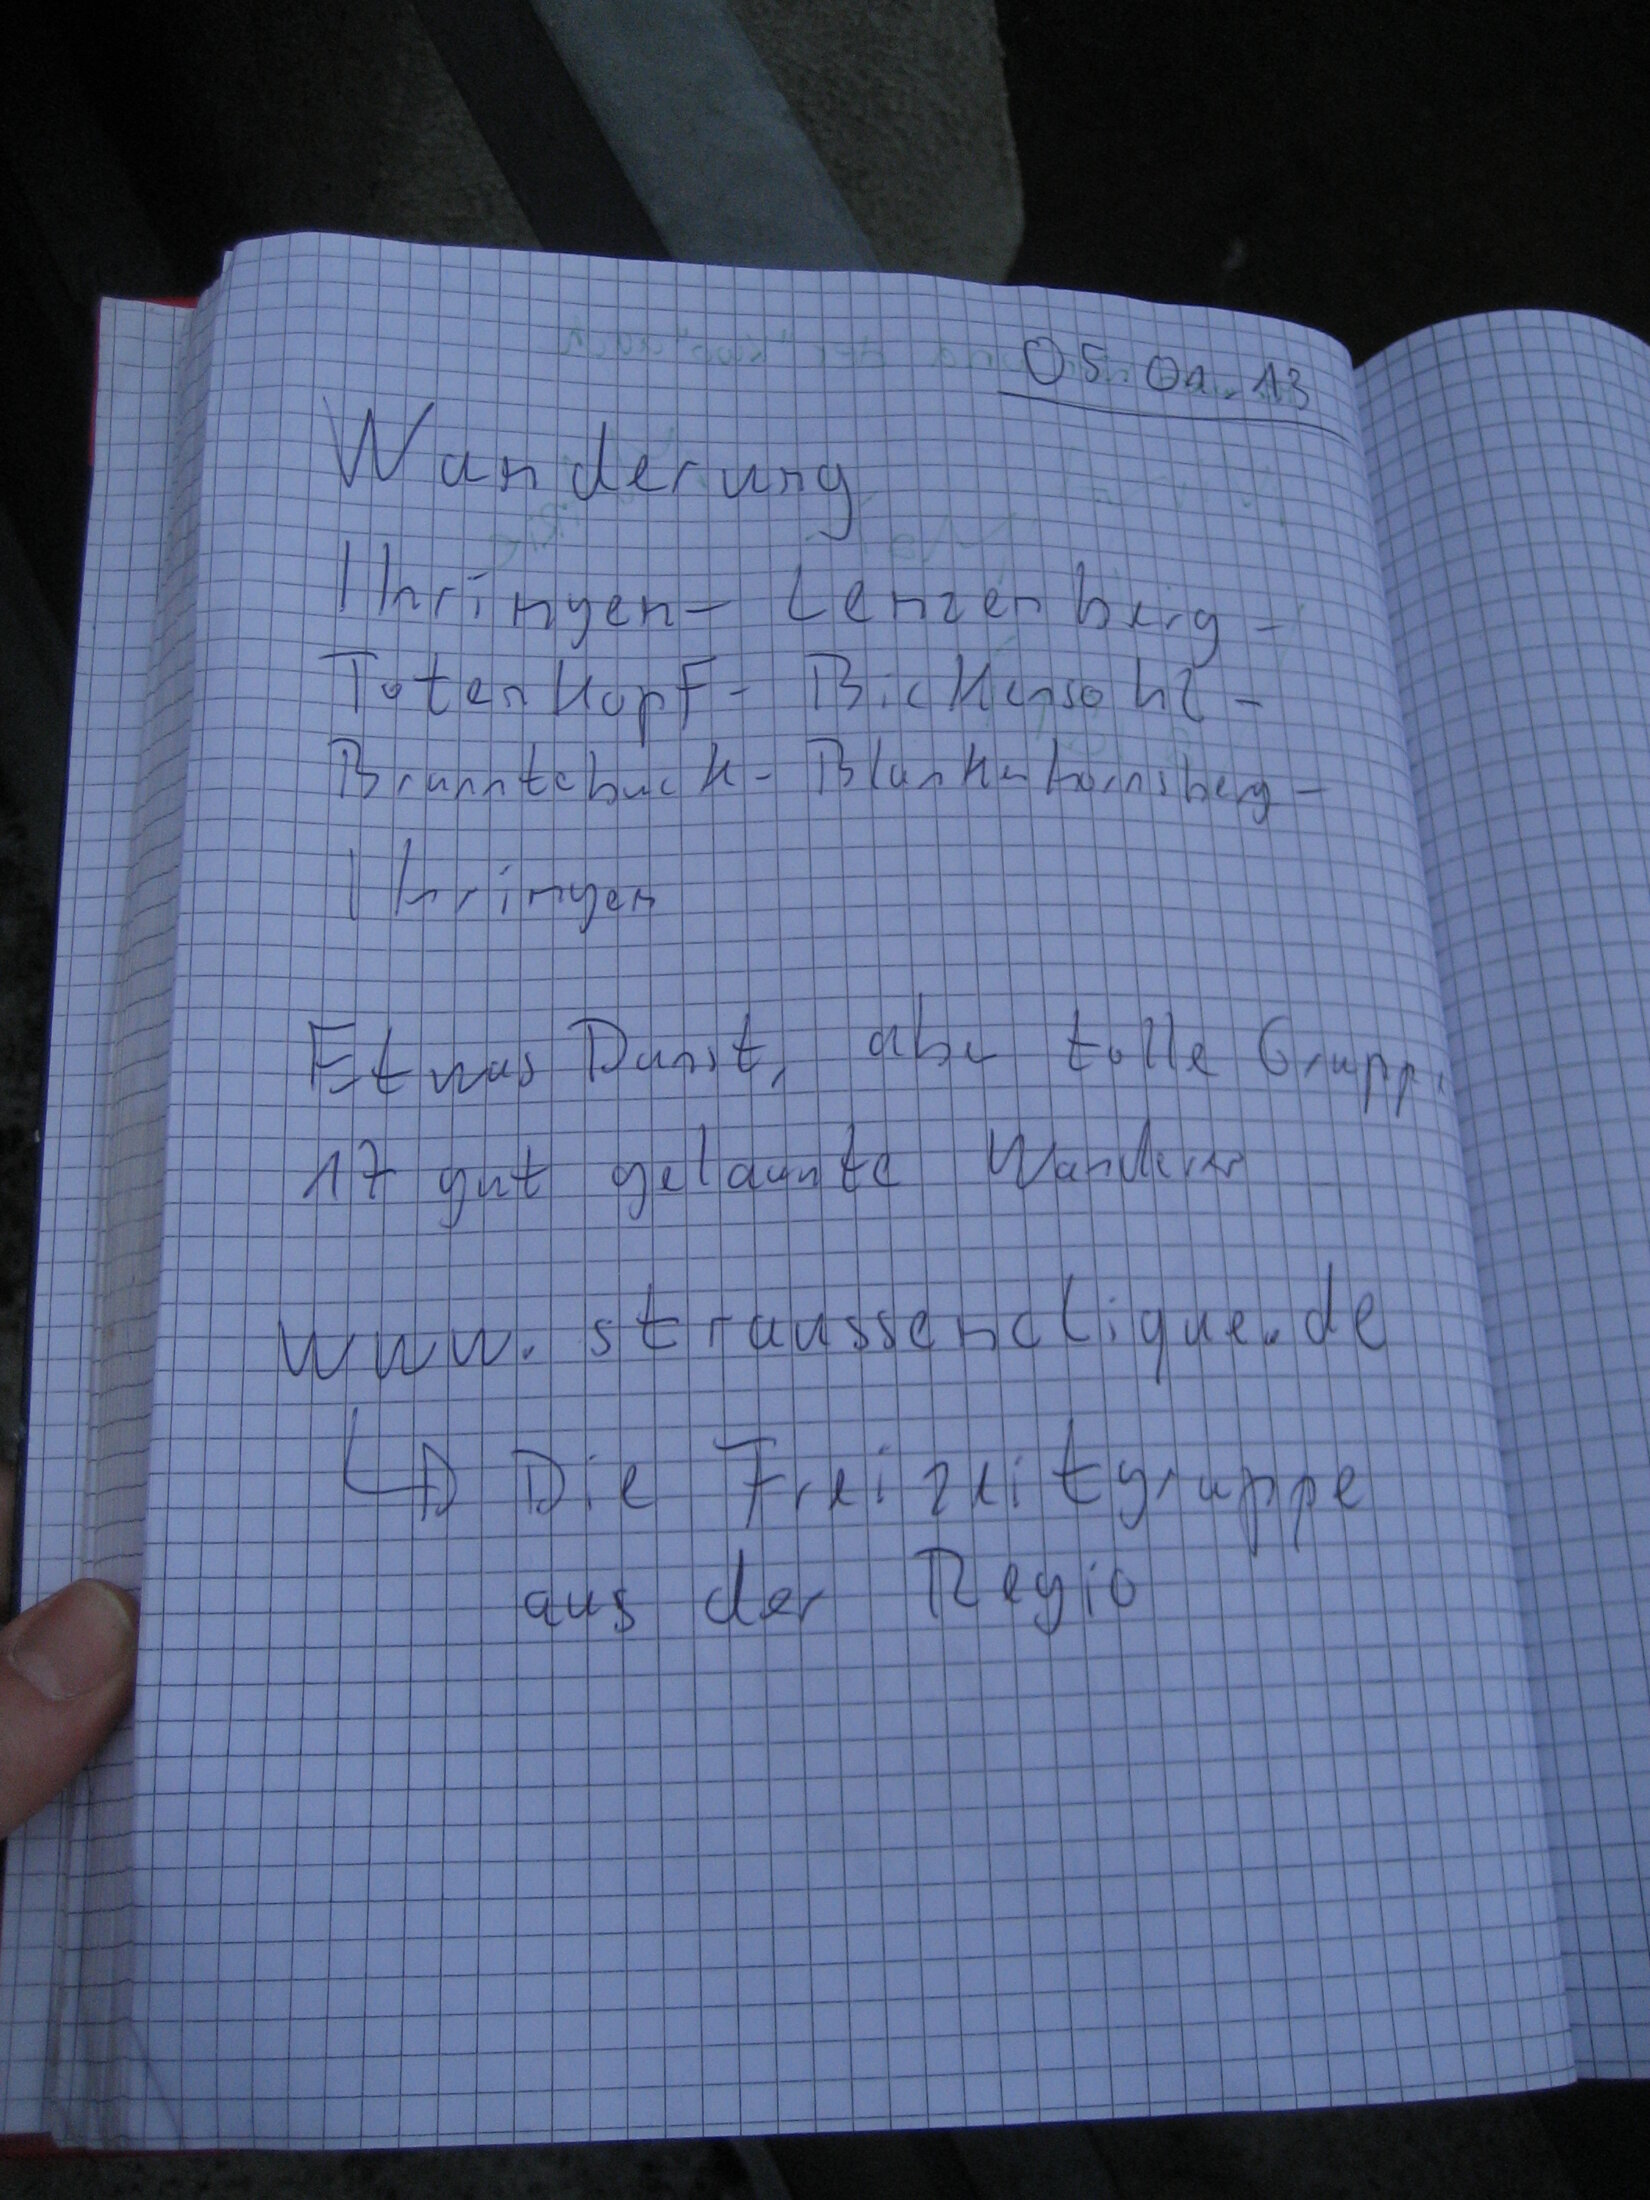 05.01.13
Wanderung
Ihringen - Lenzenberg -
Totenkopf - Bickensohl -
Branntebuck - Blankenhornsberg -
Ihringen
Etwas Dunst, aber tolle Gruppe
17 gut gelaunte Wanderer
www.straussenclique.de
Die Freizeitgruppe
aus der Regio